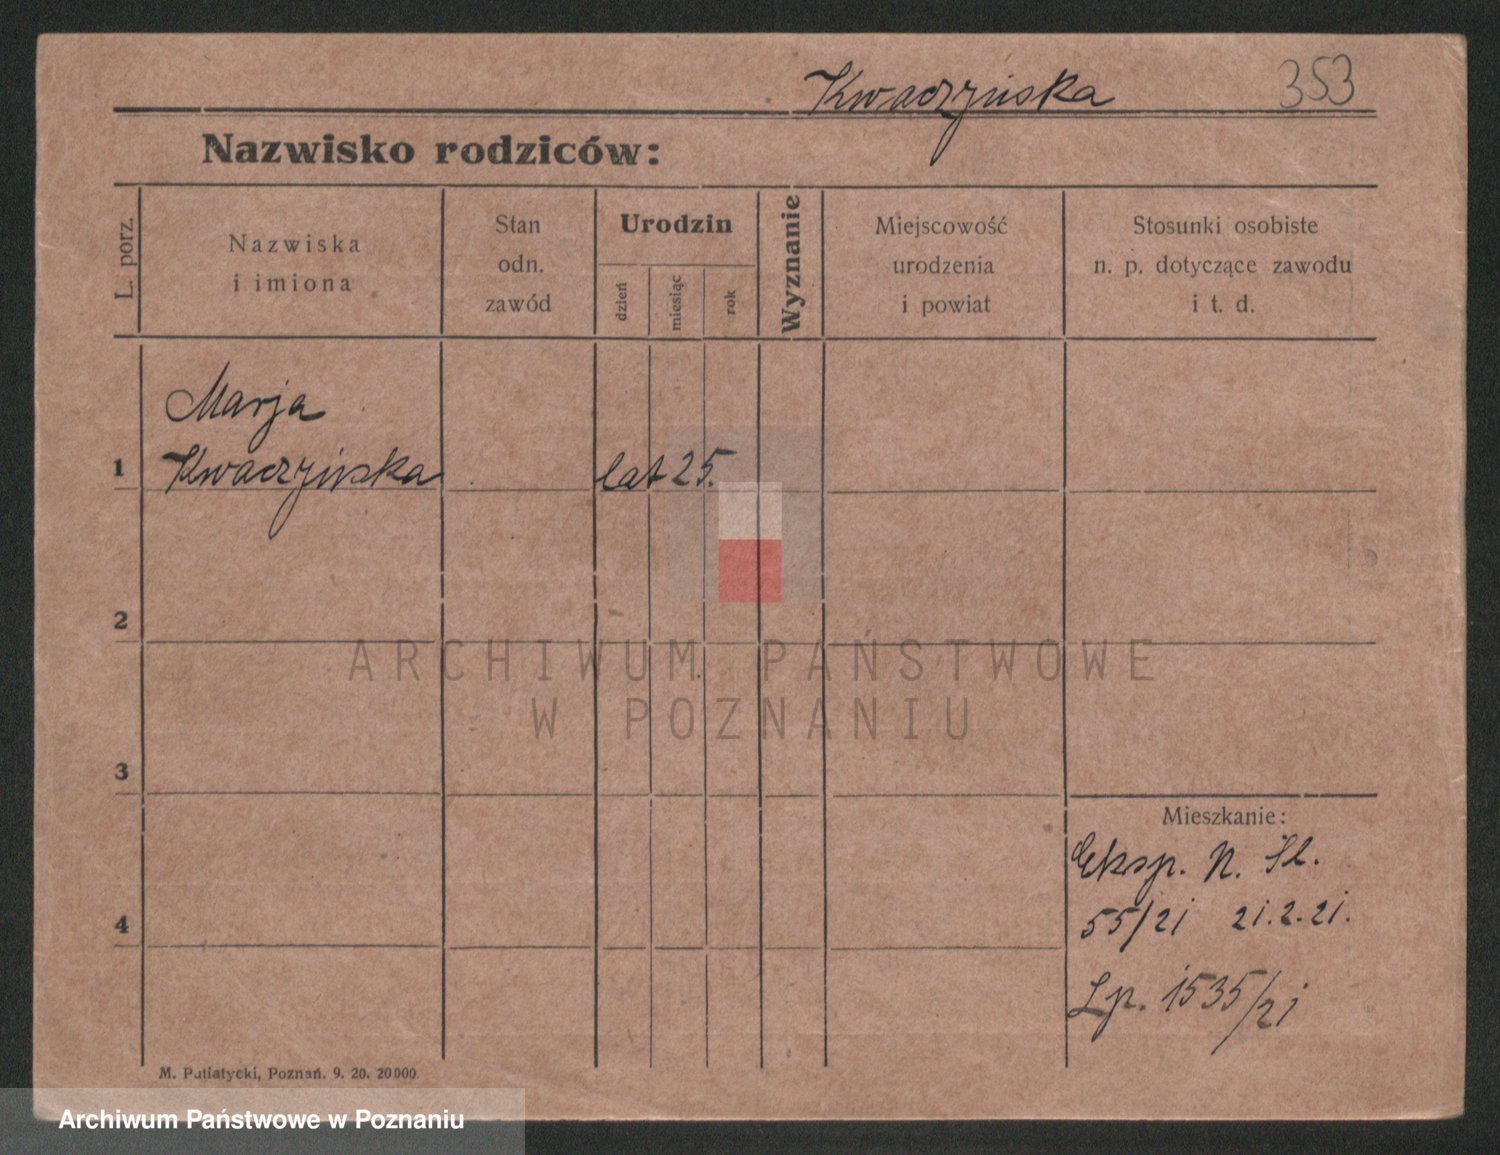 Kwaczyńska 353
Nazwisko rodziców:
L. porz.
Nazwiska
i imiona
Stan
odn.
zawód
Urodzin
dzień
miesiąc
rok
Wyznanie
Miejscowość
urodzenia
i powiat
Stosunki osobiste
n. p. dotyczące zawodu
i t. d.
Marja
1 Kwaczyńska lat 25.
2
ARCHIWUM PAŃSTWOWE
W POZNANIU
3
Mieszkanie:
Eksp. N. Sl.
4 55/21 21.2.21.
Lp. 1535/21
M. Putiatycki, Poznań. 9. 20. 20000.
Archiwum Państwowe w Poznaniu